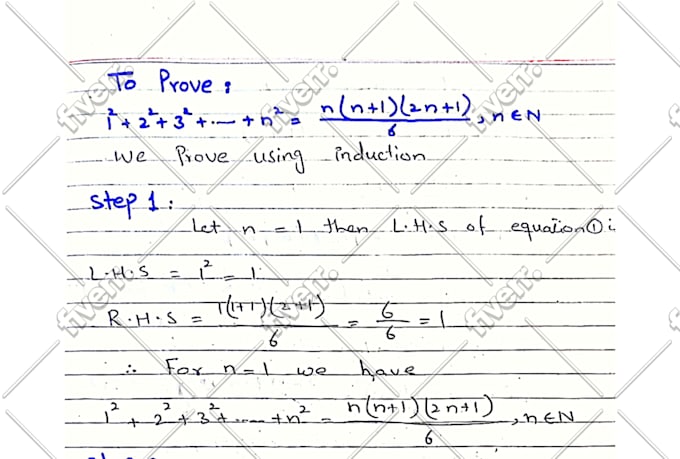 To Prove :
1² + 2² + 3² + .... + n² = n(n+1)(2n+1)/6, n∈N
We Prove using induction
Step 1 :
Let n = 1 then L.H.S of equation ① i
L.H.S = 1² = 1
R.H.S = 1(1+1)(2+1)/6 = 6/6 = 1
∴ For n=1 we have
1² + 2² + 3² + ..... + n² = n(n+1)(2n+1)/6, n∈N
fiverr.
fiverr.
fiverr.
fiverr.
fiverr.
fiverr.
fiverr.
fiverr.